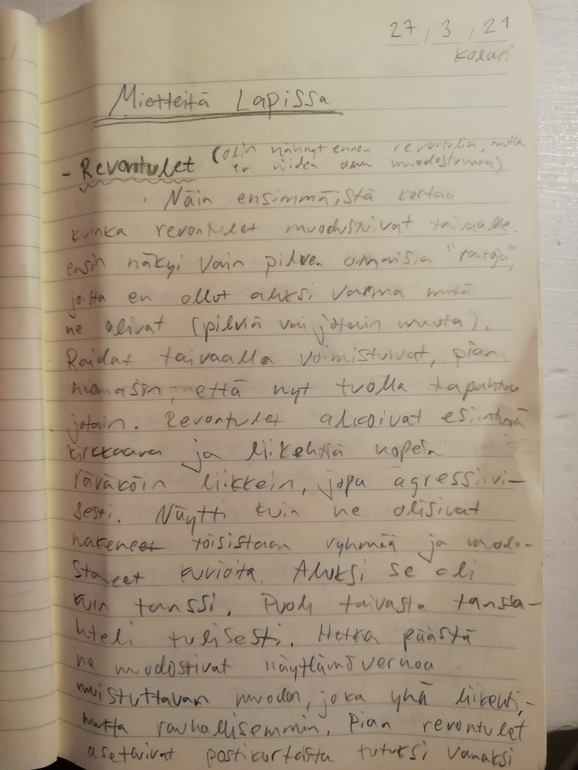 27 / 3 / 21
Kolari
Mietteitä Lapissa
- Revontulet (olin nähnyt ennen revontulia, mutta
en niiden muodostumista)
Näin ensimmäistä kertaa
kuinka revontulet muodostivat taivaalle.
ensin näkyi vain pilven omaisia "raitoja",
joista en ollut aluksi varma mitä
ne olivat (pilviä vai jotain muuta).
Raidat taivaalla voimistuivat, pian
huomasin, että nyt tuolla tapahtuu
jotain. Revontulet alkoivat esiintyä
kirkkaana ja liikehtiä nopein
räväköin liikkein, jopa agressiivi-
sesti. Näytti kuin ne olisivat
hakeneet toisistaan ryhmiä ja muodo-
staneet kuvioita. Aluksi se oli
kuin tanssi. Puoli taivasta tanssa-
hteli tulisesti. Hetken päästä
ne muodostivat näyttämöverhoa
muistuttavan muodon, joka yhä liikehti,
mutta rauhallisemmin. Pian revontulet
asettuivat postikorteista tutuksi vanaksi